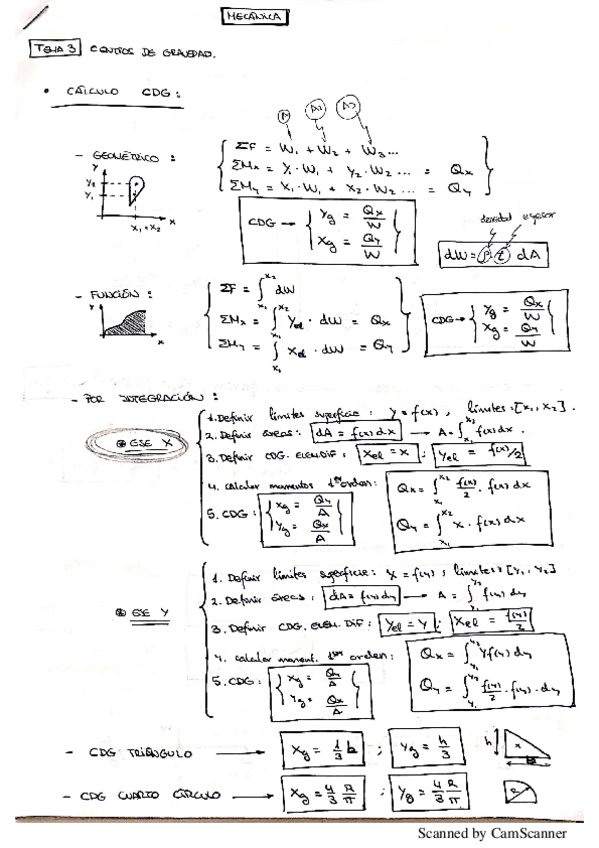 MECÁNICA
TEMA 3 CENTROS DE GRAVEDAD.
• CÁLCULO CDG:
- GEOMÉTRICO:
ΣF = W₁ + W₂ + W₃ ...
ΣMx = Y₁·W₁ + Y₂·W₂ ... = Qx
ΣMy = X₁·W₁ + X₂·W₂ ... = Qy
Y
Y₂
Y₁
X₁=X₂
X
CDG → { Yg = Qx/W
Xg = Qy/W }
densidad espesor
dW = ρ·t dA
- FUNCIÓN:
Y
X
ΣF = ∫x₁^x₂ dW
ΣMx = ∫x₁^x₂ Yel · dW = Qx
ΣMy = ∫x₁^x₂ Xel · dW = Qy
CDG → { Yg = Qx/W
Xg = Qy/W }
- POR INTEGRACIÓN:
⊛ EJE X
1. Definir límites superficie: Y = f(x), límites: [x₁, x₂].
2. Definir áreas: dA = f(x) dx → A = ∫x₁^x₂ f(x) dx.
3. Definir CDG. ELEM.DIF: Xel = x ; Yel = f(x)/2
4. calcular momentos 1er orden:
Qx = ∫x₁^x₂ f(x)/2 · f(x) dx
Qy = ∫x₁^x₂ x · f(x) dx
5. CDG: { Xg = Qy/A
Yg = Qx/A }
⊛ EJE Y
1. Definir límites superficie: X = f(y), límites: [Y₁, Y₂]
2. Definir áreas: dA = f(y) dy → A = ∫y₁^y₂ f(y) dy
3. Definir CDG. ELEM. DIF: Yel = Y ; Xel = f(y)/2
4. calcular moment. 1er orden:
Qx = ∫y₁^y₂ Y f(y) dy
Qy = ∫y₁^y₂ f(y)/2 · f(y) · dy
5. CDG: { Xg = Qy/A
Yg = Qx/A }
- CDG TRIÁNGULO → Xg = 1/3 b ; Yg = h/3
h
b
- CDG CUARTO CÍRCULO → Xg = 4/3 R/π ; Yg = 4/3 R/π
Scanned by CamScanner